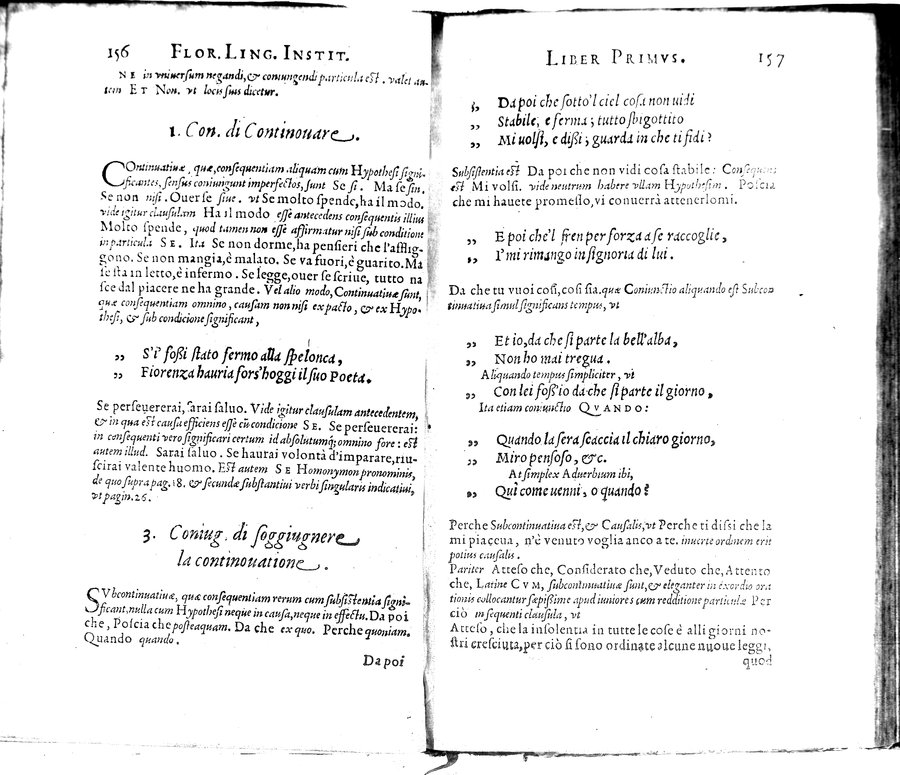 156 FLOR. LING. INSTIT.
NE in vniuersum negandi, & coniungendi particula est. valet au-
tem ET Non. vt locis suis dicetur.
1. Con. di Continouare.
COntinuatiuæ, quæ, consequentiam aliquam cum Hypothesi signi-
ficantes, sensus coniungunt imperfectos, sunt Se si. Ma se sin.
Se non nisi. Ouer se siue. vt Se molto spende, ha il modo.
vide igitur clausulam Ha il modo esse antecedens consequentis illius
Molto spende, quod tamen non esse affirmatur nisi sub conditione
in particula SE. Ita Se non dorme, ha pensieri che l'afflig-
gono. Se non mangia, è malato. Se va fuori, è guarito. Ma
se sta in letto, è infermo. Se legge, ouer se scriue, tutto na
sce dal piacere ne ha grande. Vel alio modo, Continuatiuæ sunt,
quæ consequentiam omnino, causam non nisi ex pacto, & ex Hypo-
thesi, & sub condicione significant,
„ S'i' fossi stato fermo alla spelonca,
„ Fiorenza hauria fors'hoggi il suo Poeta.
Se perseuererai, sarai saluo. Vide igitur clausulam antecedentem,
& in qua est causa efficiens esse cū condicione SE. Se perseuererai:
in consequenti vero significari certum id absolutumq; omnino fore: est
autem illud. Sarai saluo. Se haurai volontà d'imparare, riu-
scirai valente huomo. Est autem SE Homonymon pronominis,
de quo supra pag. 18. & secundæ substantiui verbi singularis indicatiui,
vt pagin. 26.
3. Coniug. di soggiugnere
la continouatione.
SVbcontinuatiuæ, quæ consequentiam rerum cum subsistentia signi-
ficant, nulla cum Hypothesi neque in causa, neque in effectu. Da poi
che, Poscia che posteaquam. Da che ex quo. Perche quoniam.
Quando quando.
Da poi
LIBER PRIMVS. 157
„ Da poi che sotto'l ciel cosa non uidi
„ Stabile, e ferma; tutto sbigottito
„ Mi uolsi, e dissi; guarda in che ti fidi?
Subsistentia est Da poi che non vidi cosa stabile: Consequens
est Mi volsi. vide neutrum habere vllam Hypothesim. Poscia
che mi hauete promesso, vi conuerrà attenerlomi.
„ E poi che'l fren per forza a se raccoglie,
„ I' mi rimango in signoria di lui.
Da che tu vuoi così, così sia. quæ Coniunctio aliquando est Subcon
tinuatiua simul significans tempus, vt
„ Et io, da che si parte la bell'alba,
„ Non ho mai tregua.
Aliquando tempus simpliciter, vt
„ Con lei foss'io da che si parte il giorno,
Ita etiam coniunctio QVANDO:
„ Quando la sera scaccia il chiaro giorno,
„ Miro pensoso, &c.
At simplex Aduerbium ibi,
„ Qui come uenni, o quando?
Perche Subcontinuatiua est, & Causalis, vt Perche ti dissi che la
mi piaceua, n'è venuto voglia anco a te. inuerte ordinem erit
potius causalis.
Pariter Atteso che, Considerato che, Veduto che, Attento
che, Latine CVM, subcontinuatiuæ sunt, & eleganter in exordio ora
tionis collocantur sæpissime apud iuniores cum redditione particulæ Per
ciò in sequenti clausula, vt
Atteso, che la insolentia in tutte le cose è alli giorni no-
stri cresciuta, per ciò si sono ordinate alcune nuoue leggi,
quod